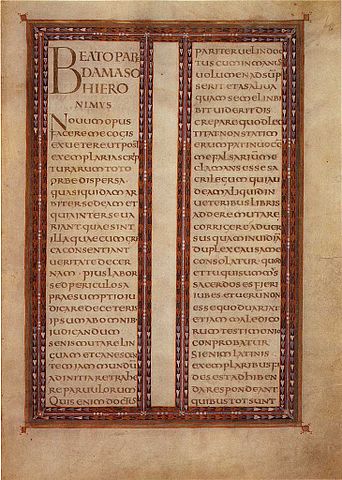 BEATO PAPAE
DAMASO
HIERO
NIMUS
Novum opus
facere me cogis
ex vetere ut post
exemplaria scrip
turarum toto
orbe dispersa
quasi quidam ar
biter sedeam et
quia inter se va
riant quae sint
illa quae cum gre
ca consentiant
veritate decer
nam · pius labor
sed periculosa
praesumptio iu
dicare de ceteris
ipsum ab omnib
iudicandum
senis mutare lin
guam et canescen
tem iam mundu
ad initia retrahe
re parvulorum
Quis enim doctus
pariter vel indoc
tus cum in manus
volumen adsum
pserit et a saliva
quam semel inbi
bit viderit dis
crepare quod lec
titat non statim
erumpat in voce
me falsarium e
clamans esse sa
crilegum qui au
deam aliquid in
veteribus libris
addere mutare
corrigere adver
sus quam invidia
duplex causa me
consolatur · quod
et tu qui summus
sacerdos es fieri
iubes et verum non
esse quod variat
etiam maledico
rum testimonio
conprobatur
Si enim latinis
exemplaribus fi
des est adhiben
da respondeant
quibus tot sunt